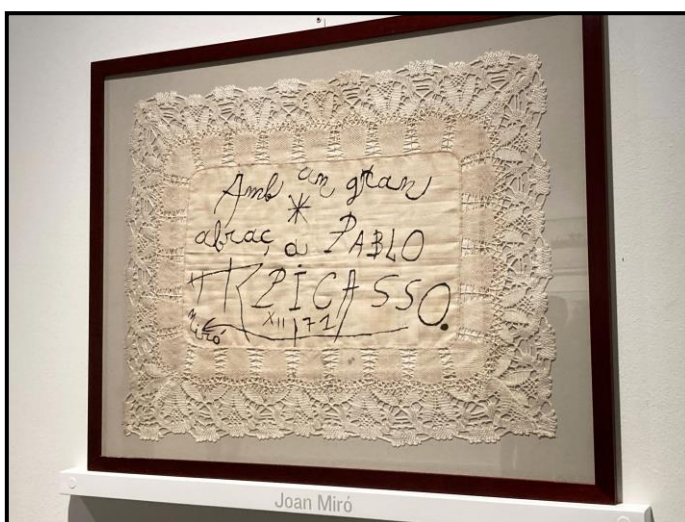 Amb un gran
abraç, a PABLO
PICASSO.
XII/71
Miró
Joan Miró